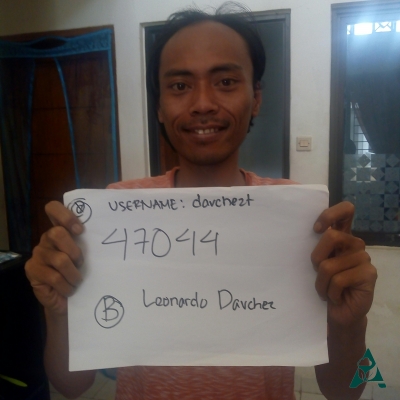 @ USERNAME: davchezt
47044
B Leonardo Davchez